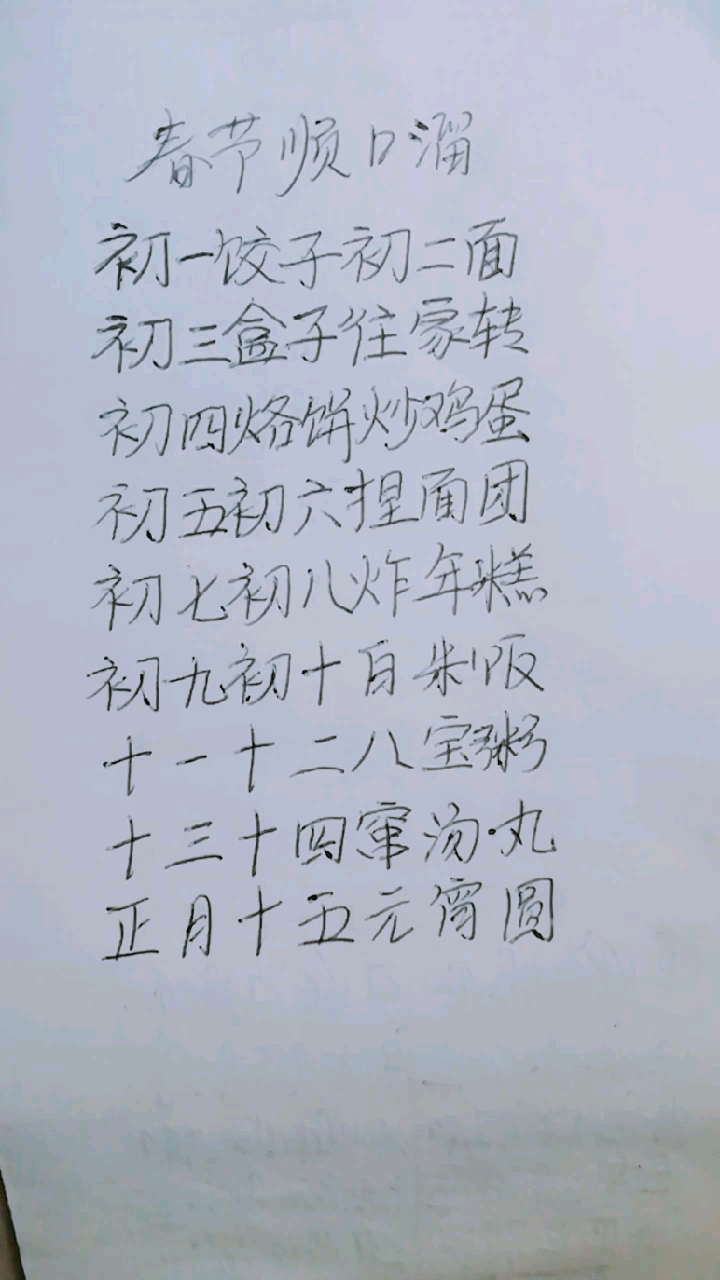 春节顺口溜
初一饺子初二面
初三盒子往家转
初四烙饼炒鸡蛋
初五初六捏面团
初七初八炸年糕
初九初十白米饭
十一十二八宝粥
十三十四氽汤丸
正月十五元宵圆